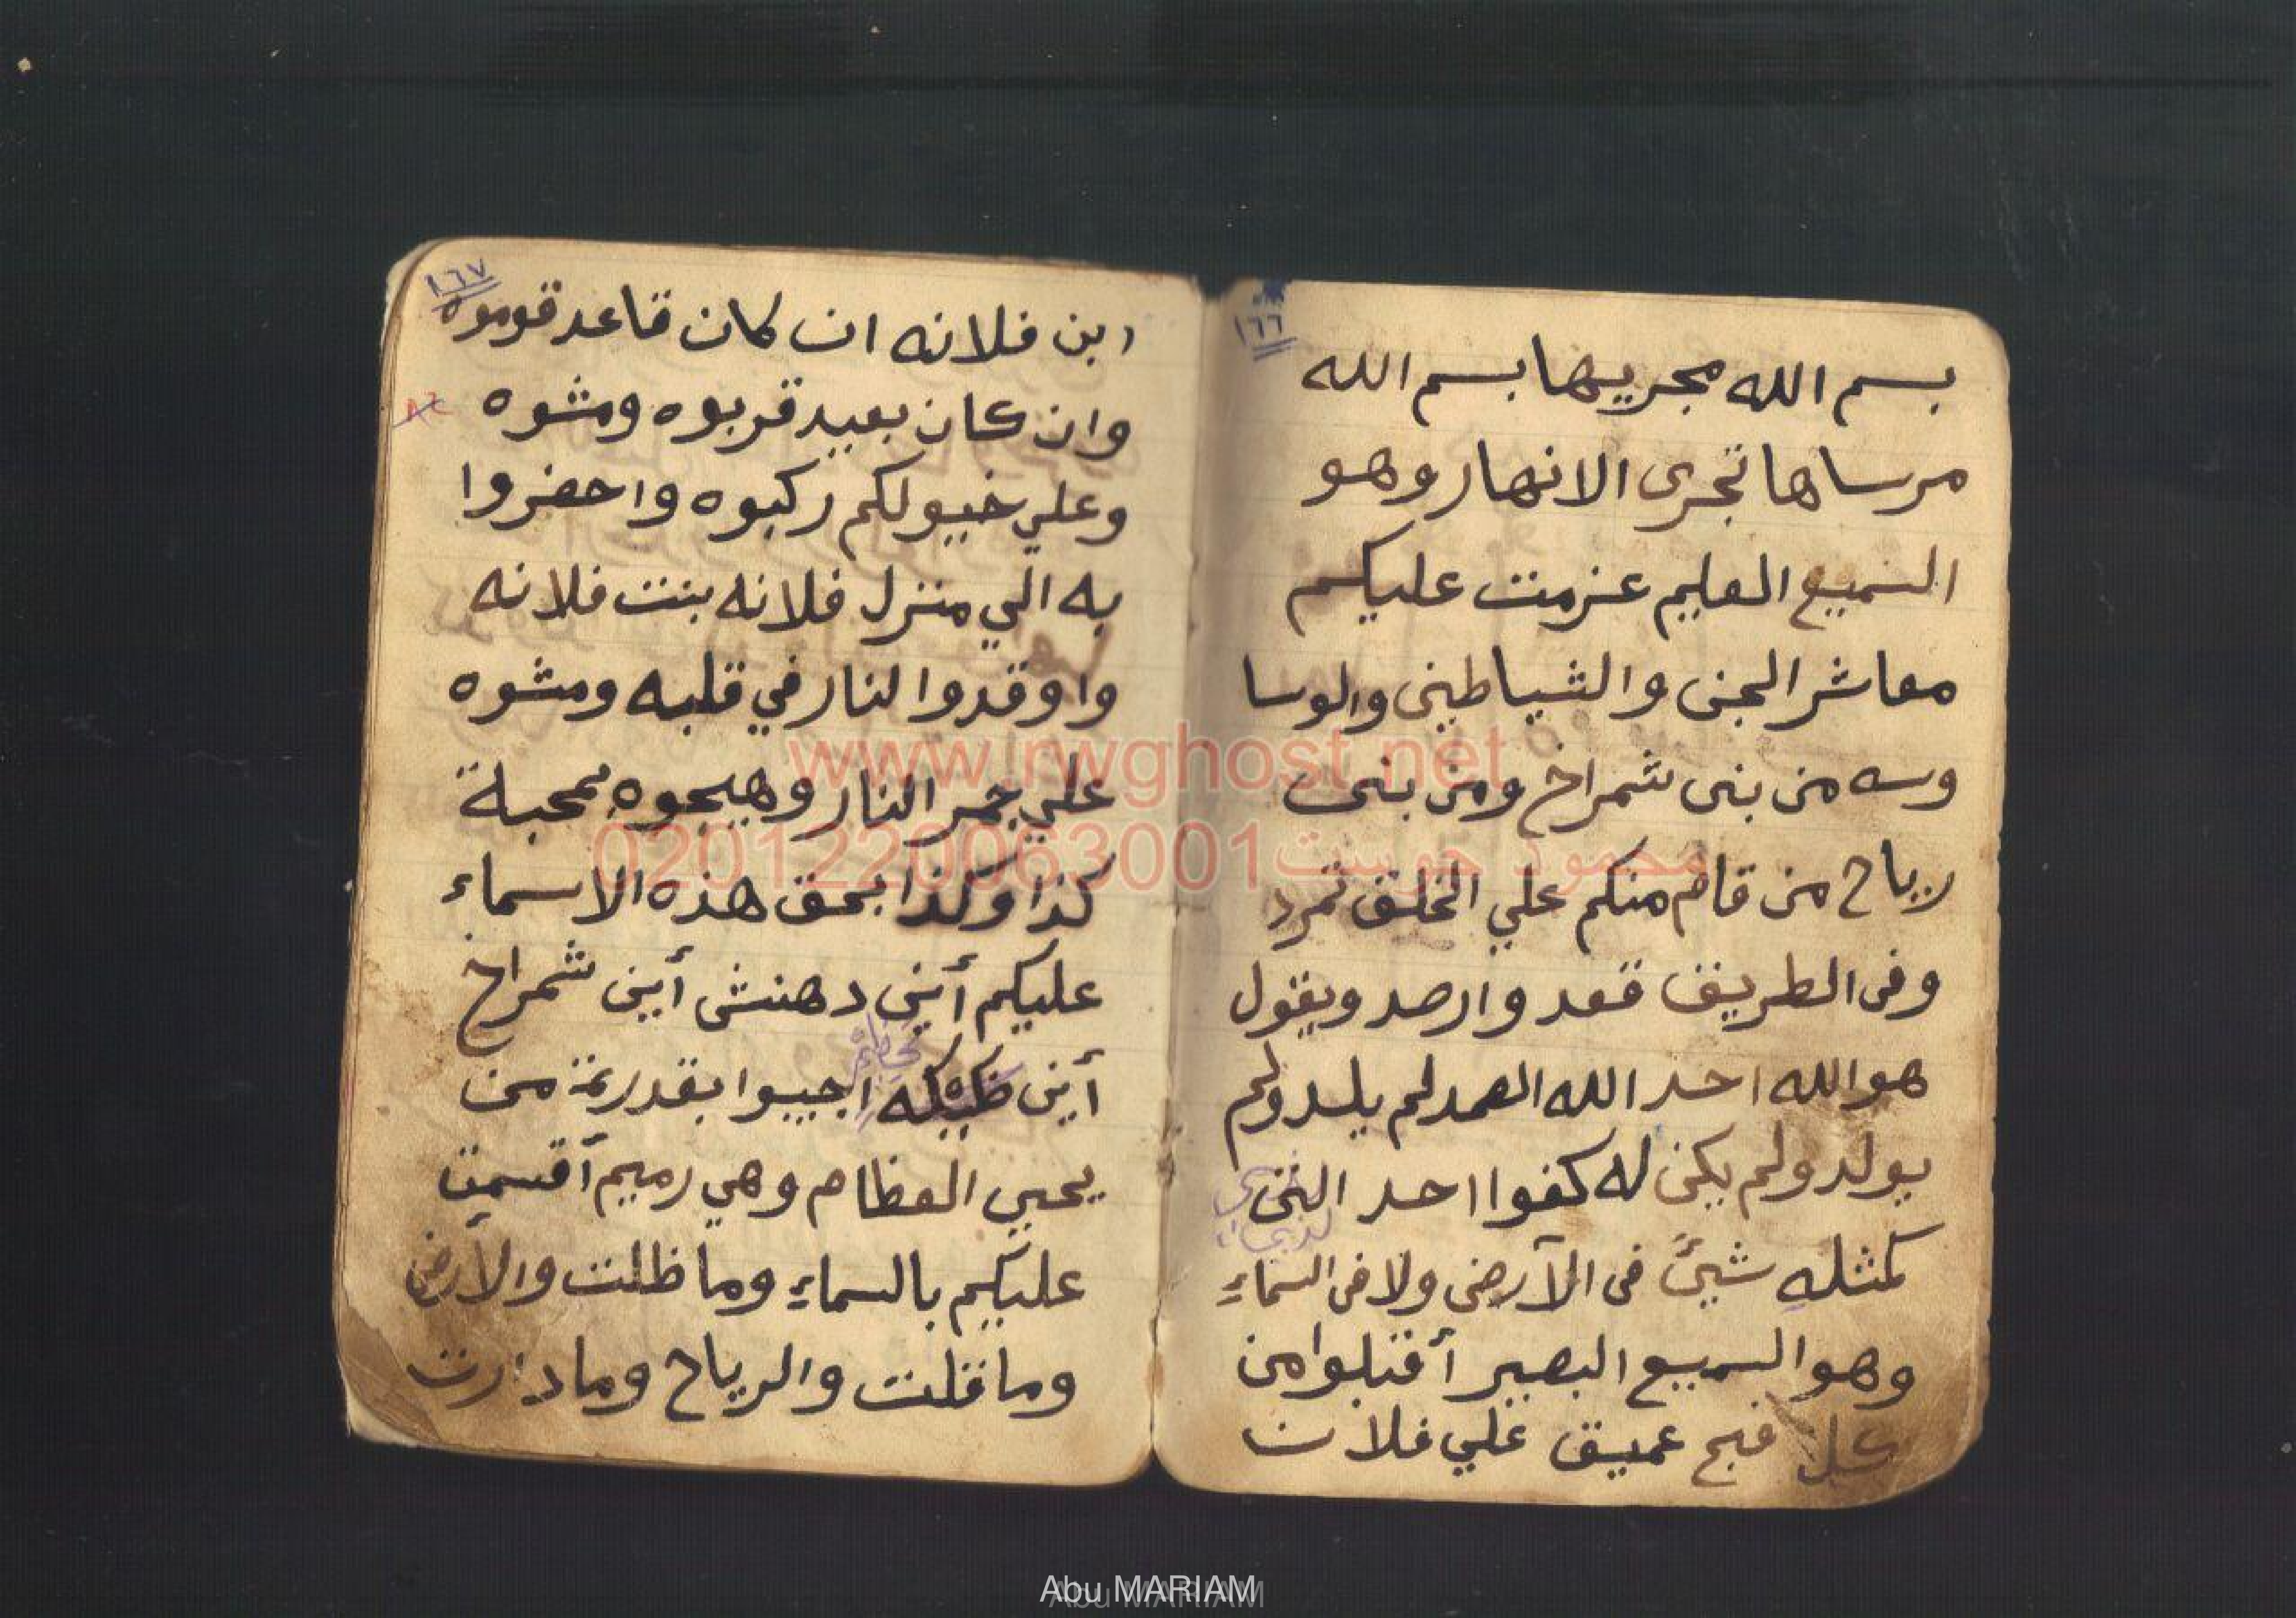 ١٦٦
بسم الله مجريها بسم الله
مرساها تجرى الانهار وهو
السميع العليم عزمت عليكم
معاشر الجن والشياطين والوسا
وسه من بنى شمراخ ومن بنى
رياح من قام منكم علي الخلق تمرد
وفى الطريق قعد وارصد ويقول
هو الله احد الله الصمد لم يلد ولم
يولد ولم يكن له كفوا احد
كمثله شيئ فى الآرض ولا فى السماء
وهو السميع البصير أقبلوا من
كل فج عميق علي فلان
١٦٧
ابن فلانه ان كان قاعد قوموه
وان كان بعيد قربوه ومشوه
وعلي خيولكم ركبوه واحضروا
به الي منزل فلانه بنت فلانه
واوقدوا النار في قلبه ومشوه
علي جمر النار وهيجوه بمحبة
كذا وكذا بحق هذه الاسماء
عليكم أين دهنش أين شمراخ
أين اجيبوا بقدرية من
يحيي العظام وهي رميم أقسمت
عليكم بالسماء وما ظلت والآرض
وما قلت والرياح وما دارت
www.rwghost.net
محمود جوست0201220063001
Abu MARIAM